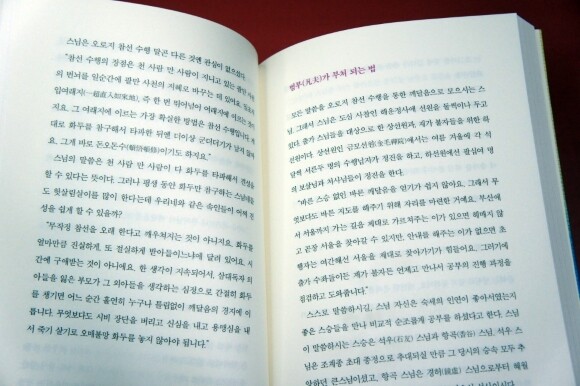 스님은 오로지 참선 수행 말곤 다른 것엔 관심이 없으셨다.
"참선 수행의 장점은 천 사람 만 사람이 지니고 있는 팔만 사천
의 번뇌를 일순간에 팔만 사천의 지혜로 바꾸는 데 있어요. 일초직
입여래지(一超直入如來地), 즉 한 번 뛰어넘어 여래지에 이르는 거
지요. 그 여래지에 이르는 가장 확실한 방법은 참선 수행입니다. 제
대로 화두를 참구해서 타파한 뒤엔 더이상 군더더기가 남지 않아
요. 그게 바로 돈오돈수(頓悟頓修)이기도 하지요."
스님의 말씀은 천 사람 만 사람이 다 화두를 타파해서 견성
할 수 있다는 뜻이다. 그러나 평생 동안 화두만 참구하는 스님네들
도 헛살림살이를 많이 한다는데 우리네와 같은 속인들이 어찌 견
성을 쉽게 할 수 있을까?
"무작정 참선을 오래 한다고 깨우쳐지는 것이 아니지요. 화두를
얼마만큼 진실하게, 또 절실하게 받아들이느냐에 달려 있어요. 시
간에 구애받는 것이 아니에요. 한 생각이 지속되어서, 삼대독자 외
아들을 잃은 부모가 그 외아들을 생각하는 심정으로 간절히 화두
를 챙기면 어느 순간 홀연히 누구나 틀림없이 깨달음의 경지에 이
릅니다. 무엇보다도 시비 장단을 버리고 신심을 내고 용맹심을 내
서 죽기 살기로 오매불망 화두를 놓지 않아야 됩니다."
범부(凡夫)가 부처 되는 법
모든 말씀을 오로지 참선 수행을 통한 깨달음으로 모으시는 스
님. 그래서 스님은 도심 사찰인 해운정사에 선원을 둘씩이나 두고
있다. 출가 스님들을 대상으로 한 상선원과, 재가 불자들을 위한 하
선원이다. 상선원인 금모선원(金毛禪院)에서는 여름 겨울에 각 석
달씩 서른두 명의 수행납자가 정진을 하고, 하선원에선 결실여 명
의 보살님과 처사님들이 정진을 한다.
"바른 스승 없인 바른 깨달음을 얻기가 쉽지 않아요. 그래서 무
엇보다도 바른 지도를 해주기 위해 자리를 마련한 거예요. 부산에
서 서울까지 가는 길을 제대로 가르쳐주는 이가 있으면 헤매지 않
고 곧장 서울을 찾아갈 수 있지만, 안내를 해주는 이가 없으면 초
행자는 여간해선 서울을 제대로 찾아가기가 힘들어요. 그러기에
출가 수좌들이든 재가 불자든 언제고 만나서 공부의 진행 과정을
점검하고 도와줍니다."
스스로 말씀하시길, 스님 자신은 숙세의 인연이 좋아서였는지
좋은 스승들을 만나 비교적 순조롭게 공부를 하셨다고 한다. 스님
이 말씀하시는 스승은 석우(石友) 스님과 향곡(香谷) 스님. 석우 스
님은 조계종 초대 종정으로 추대되실 만큼 그 당시의 승속 모두 추
앙하던 큰스님이셨고, 향곡 스님은 경허(鏡虛) 스님으로부터 혜월